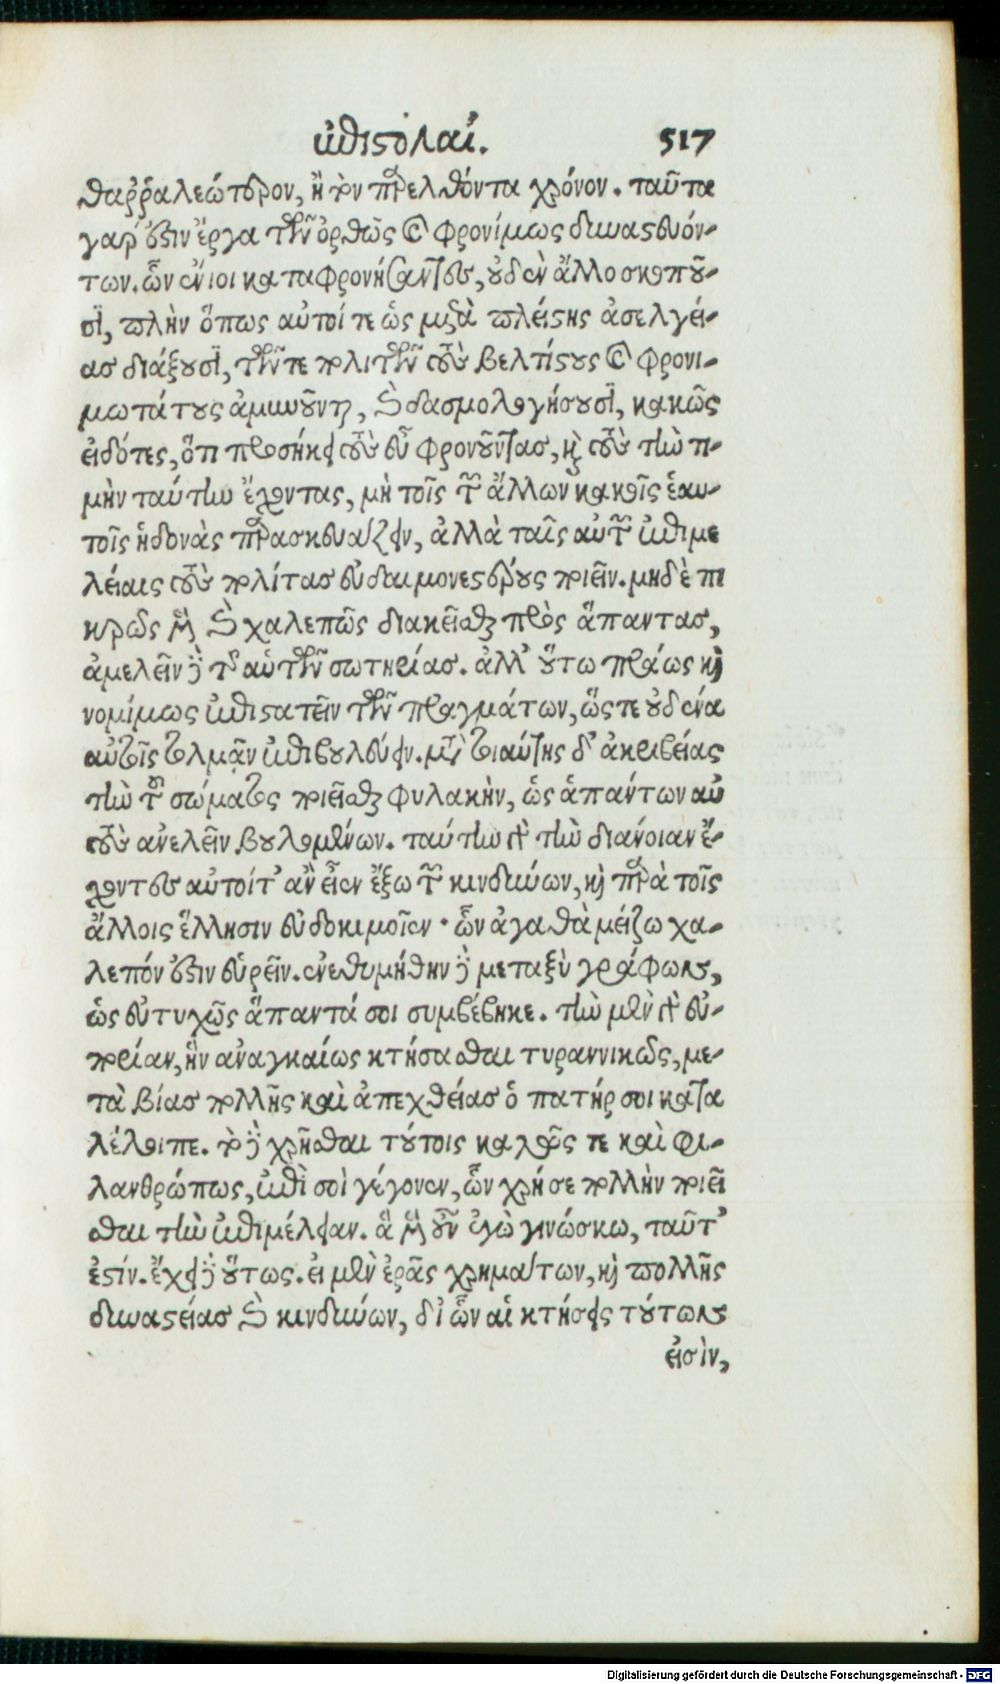 ἐπιστολαί. 517
θαῤῥαλεώτερον, ἢ τὸν παρελθόντα χρόνον. ταῦτα
γάρ ἐστιν ἔργα τῶν ὀρθῶς καὶ φρονίμως δυναστευόν-
των. ὧν ἔνιοι καταφρονήσαντες, οὐδὲν ἄλλο σκοποῦ-
σϊ, πλὴν ὅπως αὐτοί τε ὡς μετὰ πλείστης ἀσελγεί-
ας διάξουσϊ, τῶν τε πολιτῶν τοὺς βελτίστους καὶ φρονι-
μωτάτους ἀμυνοῦνται, καὶ δασμολογήσουσϊ, κακῶς
εἰδότες, ὅτι προσήκει τοὺς εὖ φρονοῦντας, καὶ τοὺς τὴν τι-
μὴν ταύτην ἔχοντας, μὴ τοῖς τῶν ἄλλων κακοῖς ἑαυ-
τοῖς ἡδονὰς παρασκευάζειν, ἀλλὰ ταῖς αὐτῶν ἐπιμε
λείαις τοὺς πολίτας εὐδαιμονεστέρους ποιεῖν. μηδὲ πι
κρῶς μὲν καὶ χαλεπῶς διακεῖσθαι πρὸς ἅπαντας,
ἀμελεῖν δὲ τῆς αὑτῶν σωτηρίας. ἀλλ' οὕτω πράως καὶ
νομίμως ἐπιστατεῖν τῶν πραγμάτων, ὥστε οὐδένα
αὐτοῖς τολμᾷν ἐπιβουλεύειν. μετὰ τοιαύτης δ' ἀκριβείας
τὴν τοῦ σώματος ποιεῖσθαι φυλακὴν, ὡς ἁπάντων αὐ
τοὺς ἀνελεῖν βουλομένων. ταύτην γὰρ τὴν διάνοιαν ἔ-
χοντες αὐτοί τ' ἂν εἶεν ἔξω τῶν κινδύνων, καὶ παρὰ τοῖς
ἄλλοις ἕλλησιν εὐδοκιμοῖεν· ὧν ἀγαθὰ μείζω χα-
λεπόν ἐστιν εὑρεῖν. ἐνεθυμήθην δὲ μεταξὺ γράφων,
ὡς εὐτυχῶς ἅπαντά σοι συμβέβηκε. τὴν μὲν γὰρ εὐ-
πορίαν, ἣν ἀναγκαίως κτήσασθαι τυραννικῶς, με-
τὰ βίας πολλῆς καὶ ἀπεχθείας ὁ πατήρ σοι κατα
λέλοιπε. τὸ δὲ χρῆσθαι τούτοις καλῶς τε καὶ φι-
λανθρώπως, ἐπὶ σοὶ γέγονεν, ὧν χρή σε πολλὴν ποιεῖ
σθαι τὴν ἐπιμέλειαν. ἃ μὲν οὖν ἐγὼ γινώσκω, ταῦτ'
ἐστίν. ἔχει δὲ οὕτως. εἰ μὲν ἐρᾷς χρημάτων, καὶ πολλῆς
δυναστείας καὶ κινδύνων, δι' ὧν αἱ κτήσεις τούτων
εἰσὶν,
Digitalisierung gefördert durch die Deutsche Forschungsgemeinschaft - DFG